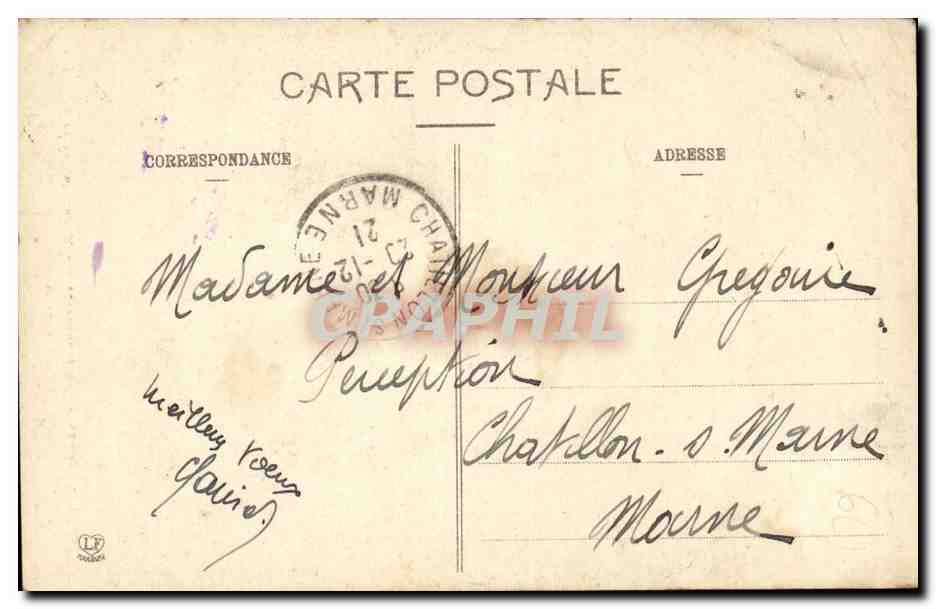 CARTE POSTALE
CORRESPONDANCE
ADRESSE
CHATILLON S MARNE
MARNE
21
23-12
30
Madame et Monsieur Gregoire
CPAPHIL
Perception
Meilleurs Voeux
Chatillon - s. Marne
Marne
LF